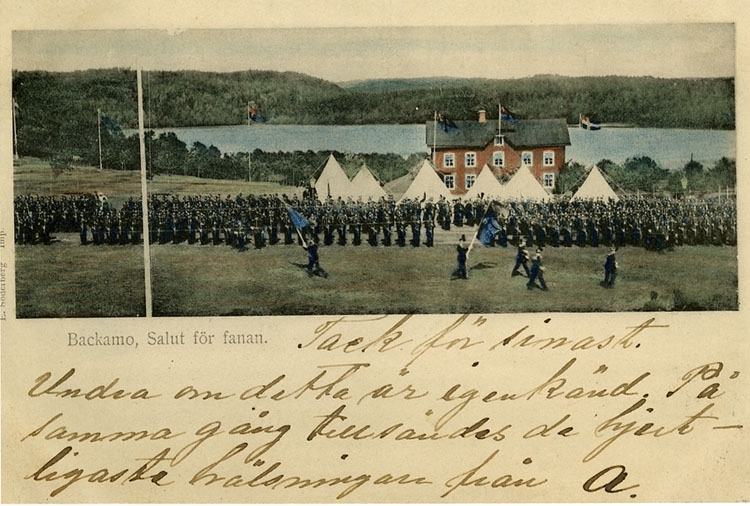 E. Söderberg Imp.
Backamo, Salut för fanan.
Tack för sinast.
Undra om detta är igenkänd. På
samma gång tillsändes de hjert-
ligaste hälsningar från A.